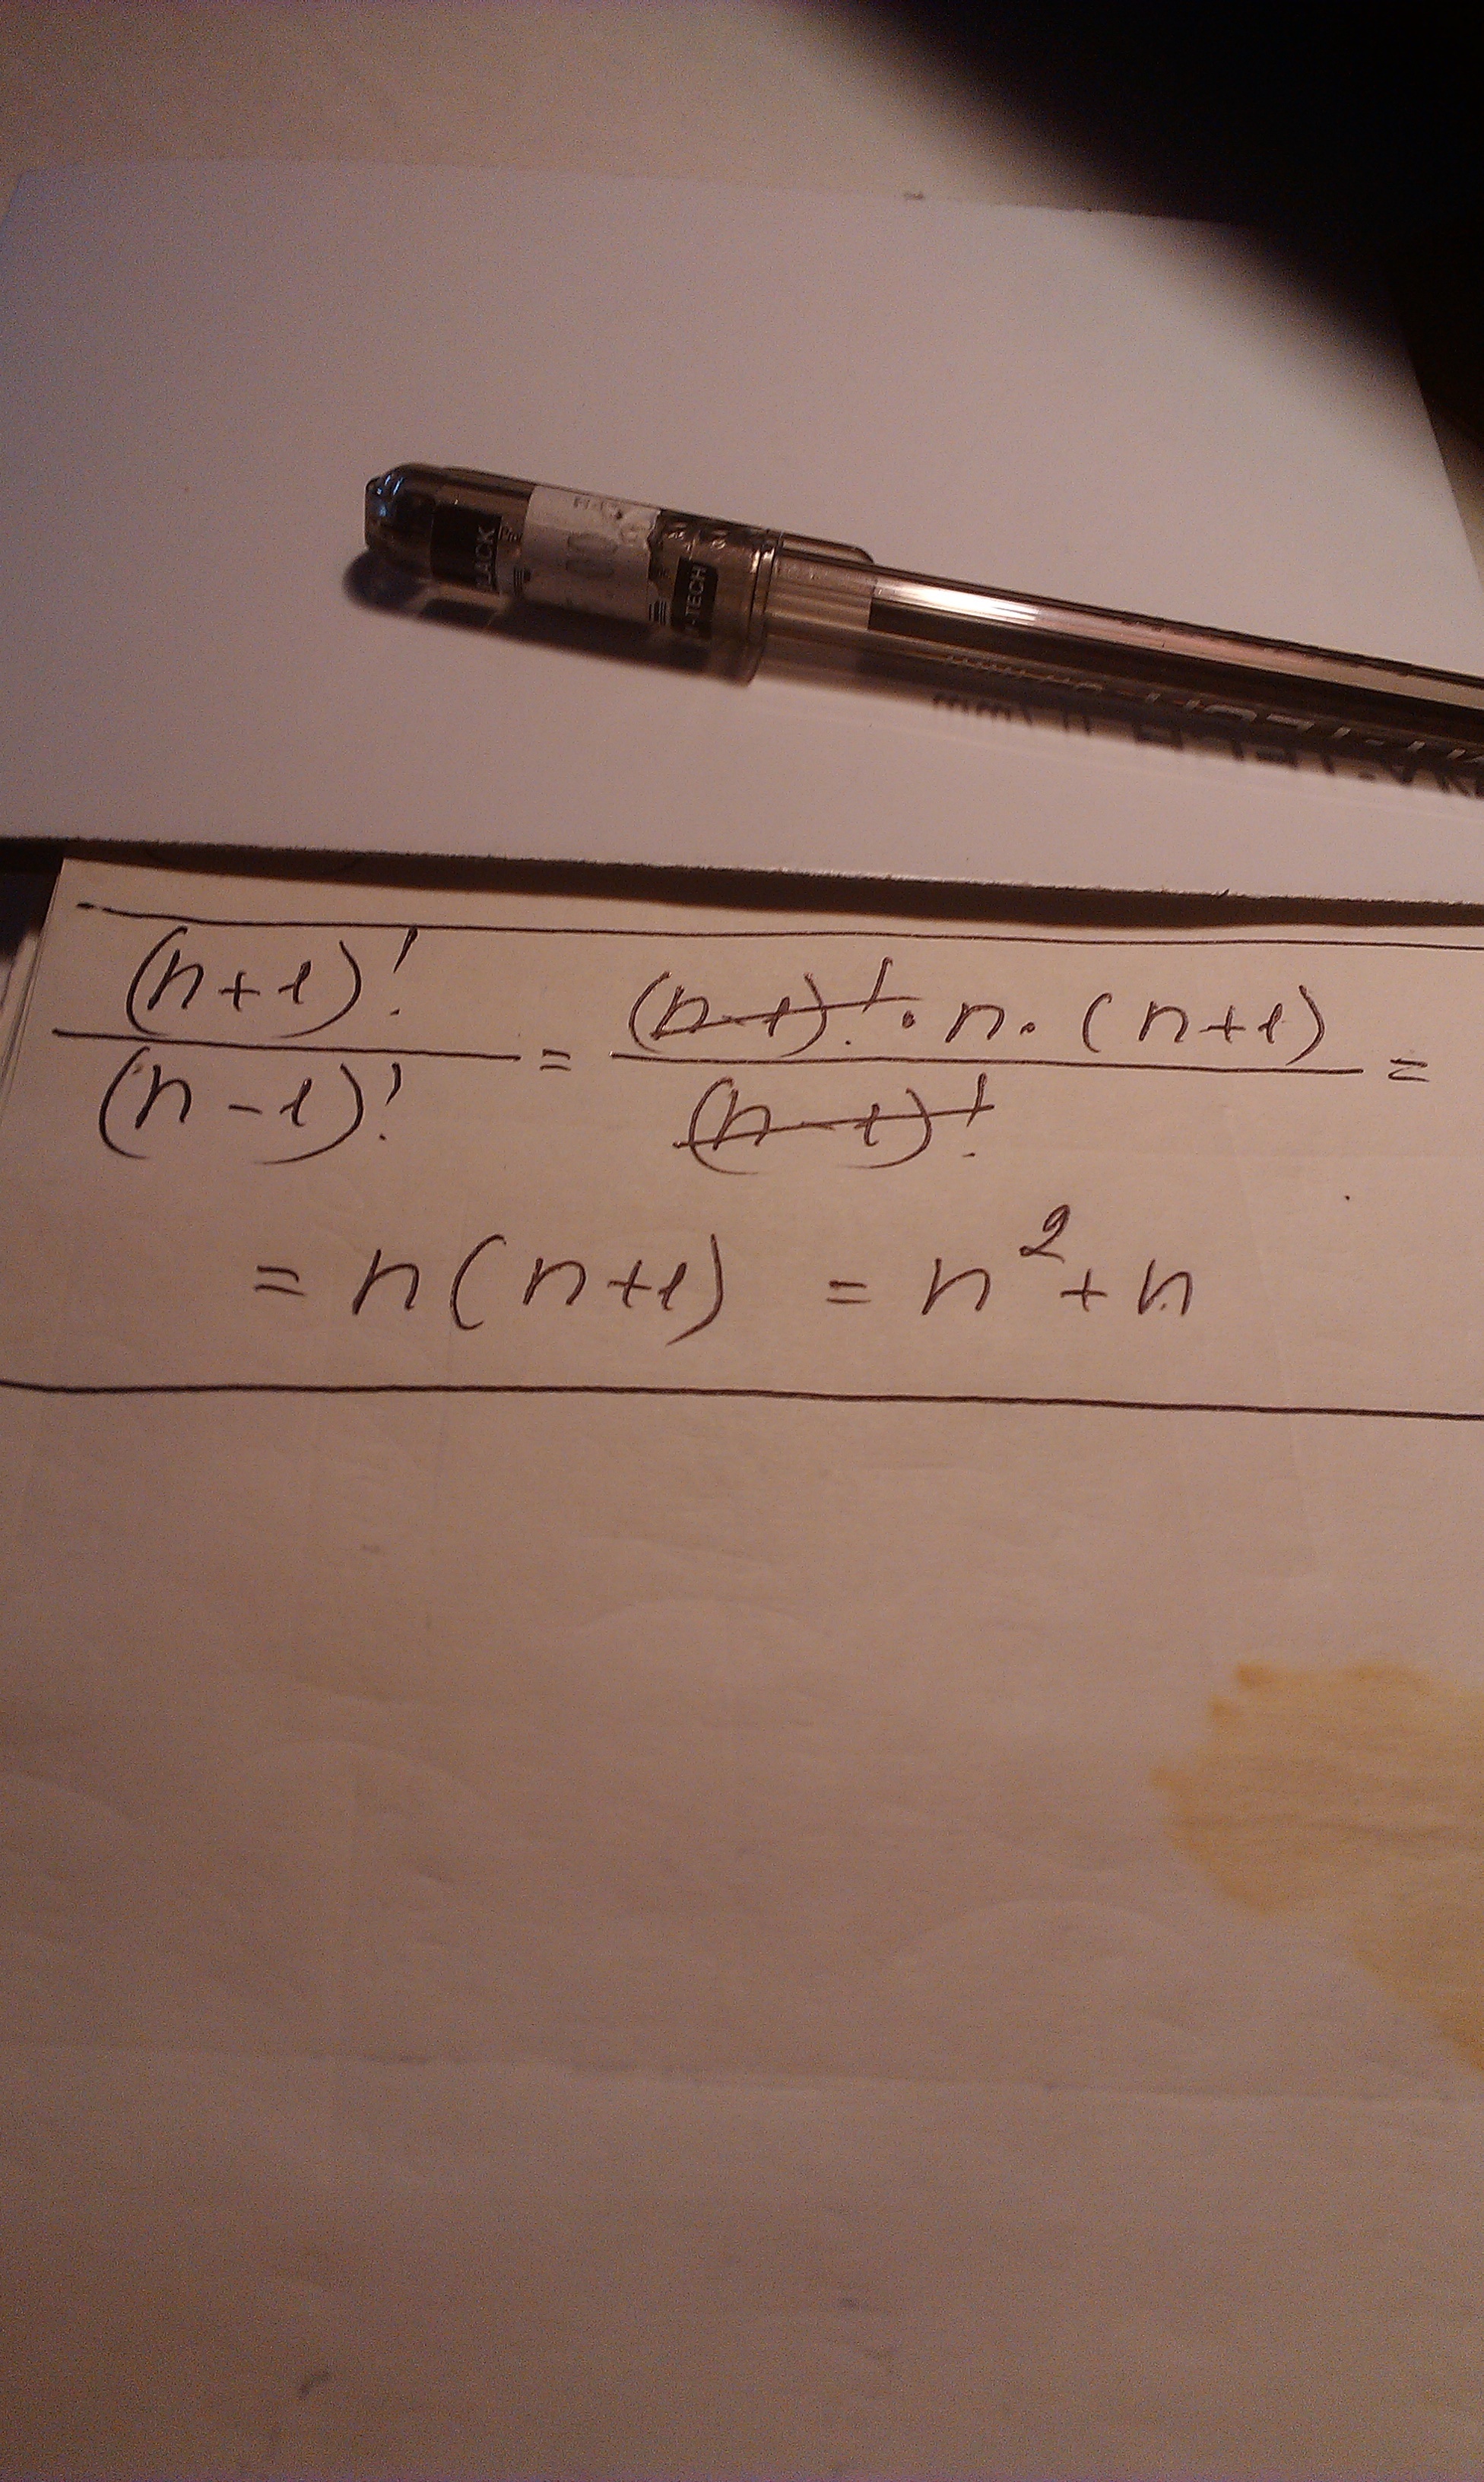 LACK
-TECH
(n+1)! / (n-1)! = (n-1)! · n · (n+1) / (n-1)! =
= n(n+1) = n²+n